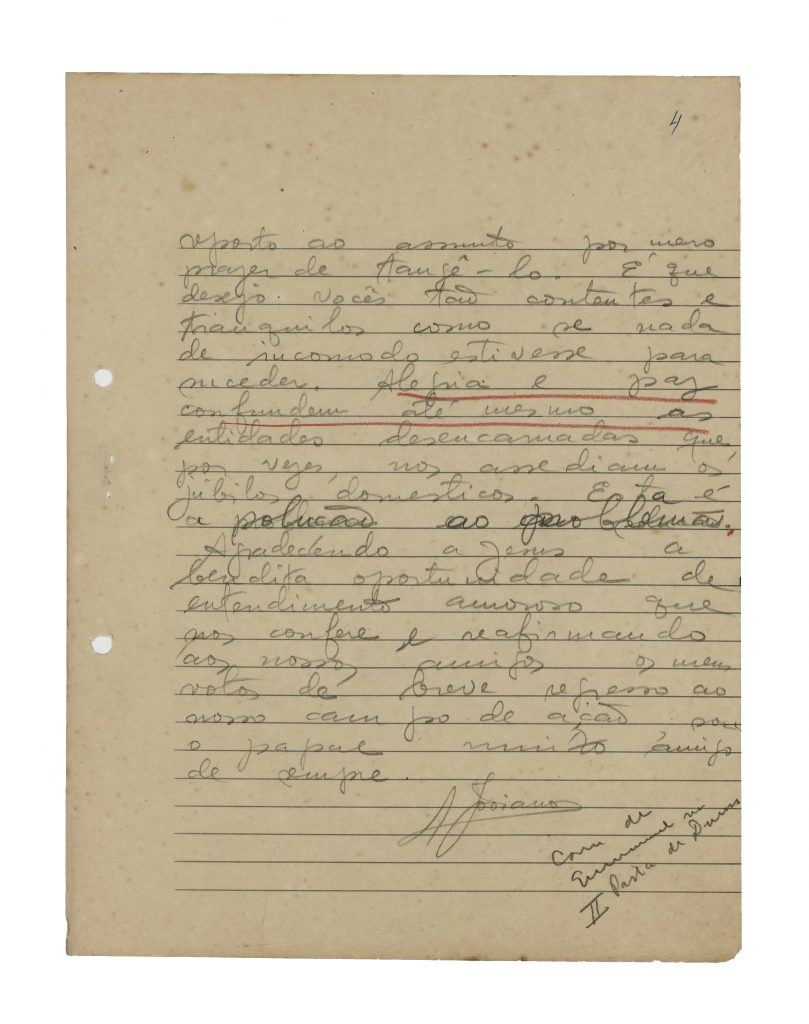 4
reporto ao assunto por mero
prazer de tangê-lo. É que
desejo vocês tão contentes e
tranquilos como se nada
de incomodo estivesse para
suceder. Alegria e paz
confundem até mesmo as
entidades desencarnadas que,
por vezes, nos assediam os
júbilos domesticos. Esta é
a solução ao problema.
Agradecendo a Jesus a
bendita oportunidade de
entendimento amoroso que
nos confere, e reafirmando
aos nossos amigos os meus
votos de breve regresso ao
nosso campo de ação sou
o papae muito amigo
de sempre.
A Joviano
de
Emmanuel na
II Pasta de